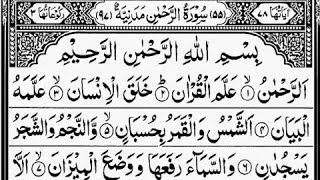 اٰيَاتُهَا ٧٨ (٥٥) سُوْرَةُ الرَّحْمٰنِ مَدَنِيَّةٌ (٩٧) رُكُوْعَاتُهَا ٣
بِسْمِ اللّٰهِ الرَّحْمٰنِ الرَّحِيْمِ
اَلرَّحْمٰنُ ۙ﴿١﴾ عَلَّمَ الْقُرْاٰنَ ؕ﴿٢﴾ خَلَقَ الْاِنْسَانَ ۙ﴿٣﴾ عَلَّمَهُ
الْبَيَانَ ﴿٤﴾ اَلشَّمْسُ وَالْقَمَرُ بِحُسْبَانٍ ۙ﴿٥﴾ وَّالنَّجْمُ وَالشَّجَرُ
يَسْجُدٰنِ ﴿٦﴾ وَالسَّمَآءَ رَفَعَهَا وَوَضَعَ الْمِيْزَانَ ۙ﴿٧﴾ اَلَّا